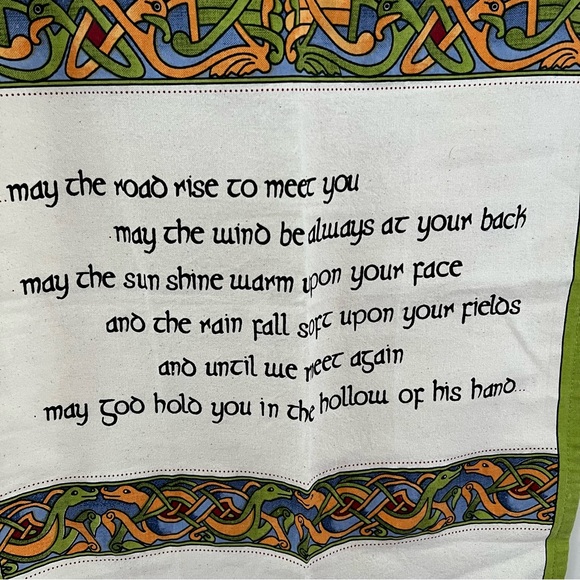 ..may the road rise to meet you
.may the wind be always at your back
may the sun shine warm upon your face
and the rain fall soft upon your fields
and until we meet again
may god hold you in the hollow of his hand...